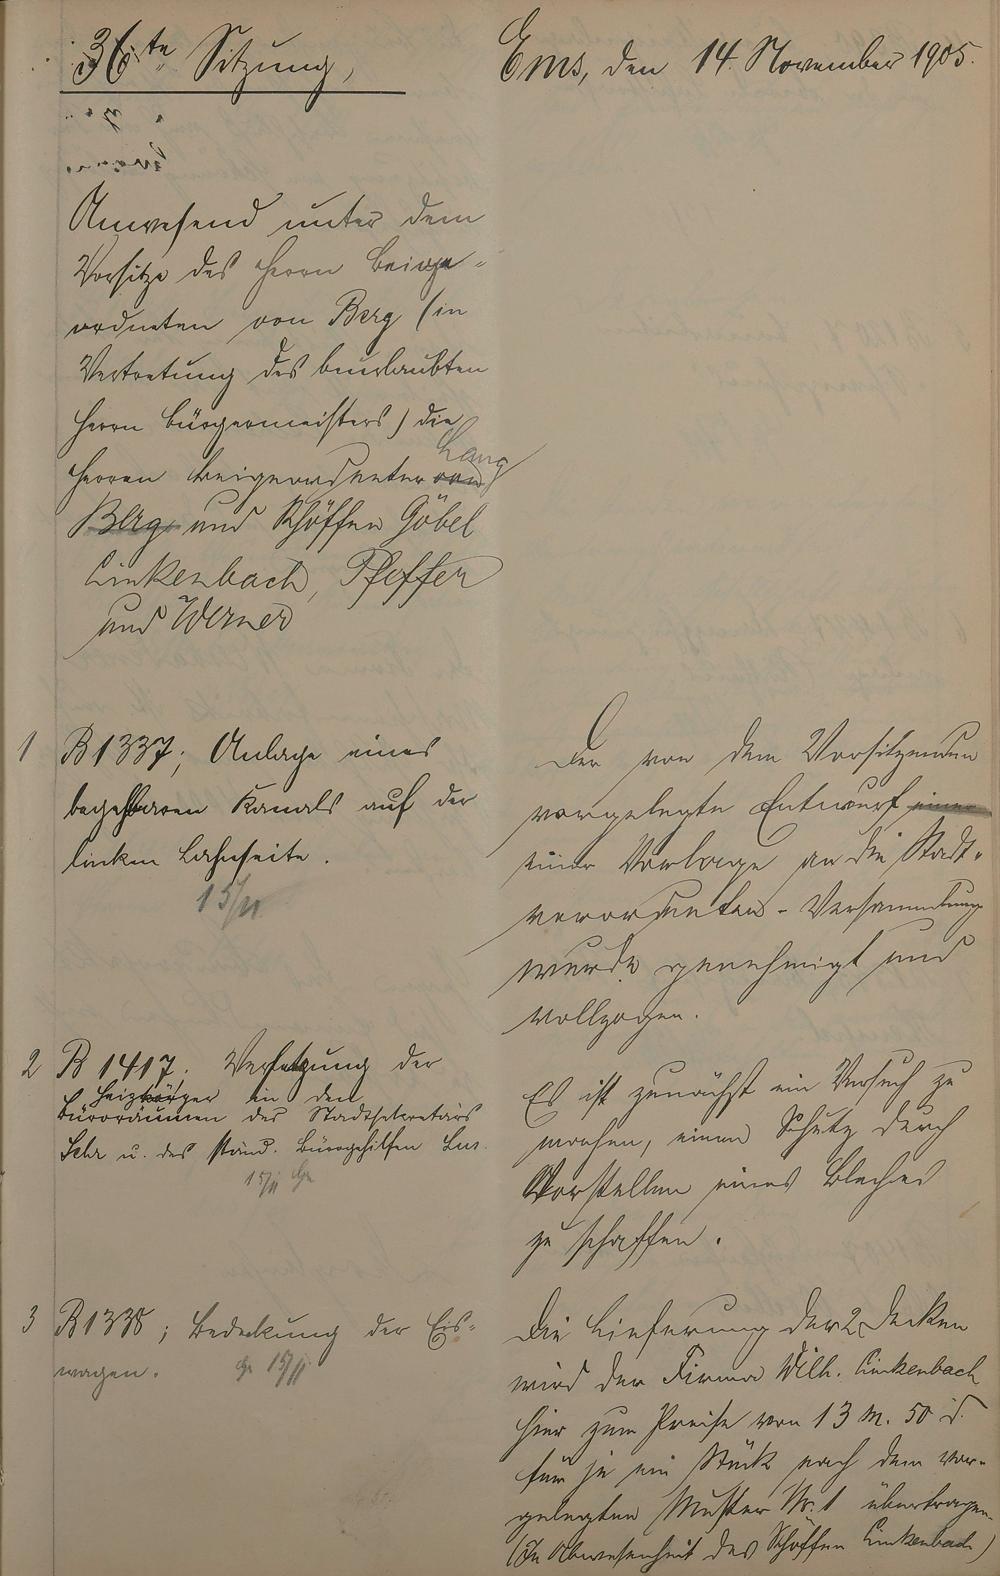 36te Sitzung,
Ems, den 14. November 1905.
Anwesend unter dem
Vorsitze des Herrn Beige=
ordneten von Berg (in
Vertretung des beurlaubten
Herrn Bürgermeisters) die
Herren Beigeordneter von Lang
Berg und Schöffen Göbel
Linkenbach, Pfeffer
und Werner
1 B 1337; Anlage eines
begehbaren Kanals auf der
linken Lahnseite.
15/11
Der von dem Vorsitzenden
vorgelegte Entwurf einer
einer Vorlage an die Stadt=
verordneten-Versammlung
wurde genehmigt und
vollzogen.
2 B 1417. Versetzung der
Heizkörper in den
Büroräumen des Stadtsekretärs
u. des ständ. Bürogehilfen
15/11
Es ist zunächst ein Versuch zu
machen, einen Schutz durch
Vorstellen eines Bleches
zu schaffen.
3 B 1338; Bedeckung der Eis=
wagen. 15/11
Die Lieferung der 2 Decken
wird der Firma Wilh. Linkenbach
hier zum Preise von 13 M. 50 d.
für je ein Stück nach dem vor-
gelegten Muster Nr. 1 übertragen.
(In Abwesenheit des Schöffen Linkenbach)